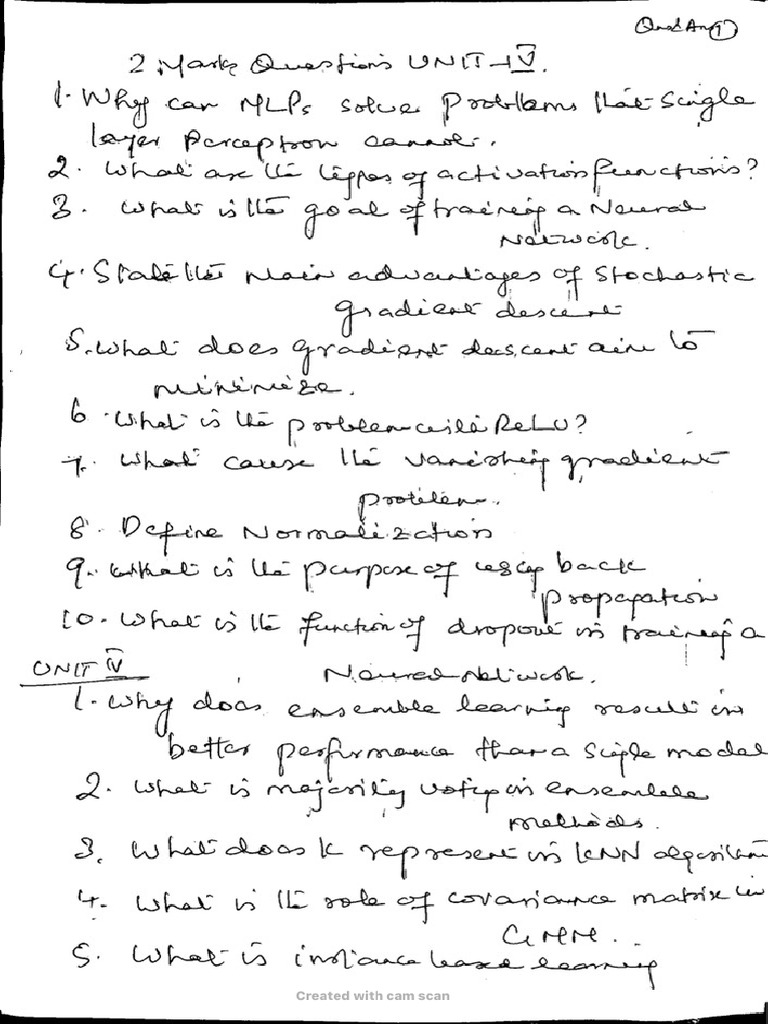 2 Marks Questions UNIT-V.
1. Why can MLPs solve problems that single
layer perceptron cannot.
2. What are the types of activation functions?
3. What is the goal of training a Neural
Network.
4. State the main advantages of stochastic
gradient descent
5. What does gradient descent aim to
minimize.
6. What is the problem with ReLU?
7. What cause the vanishing gradient
problem.
8. Define Normalization
9. What is the purpose of using back
propagation
10. What is the function of dropout in training a
Neural Network.
UNIT IV
1. Why does ensemble learning result in
better performance than a single model
2. What is majority voting in ensemble
methods.
3. What does k represent in KNN algorithm
4. What is the role of covariance matrix in
GMM.
5. What is instance based learning
Created with cam scan